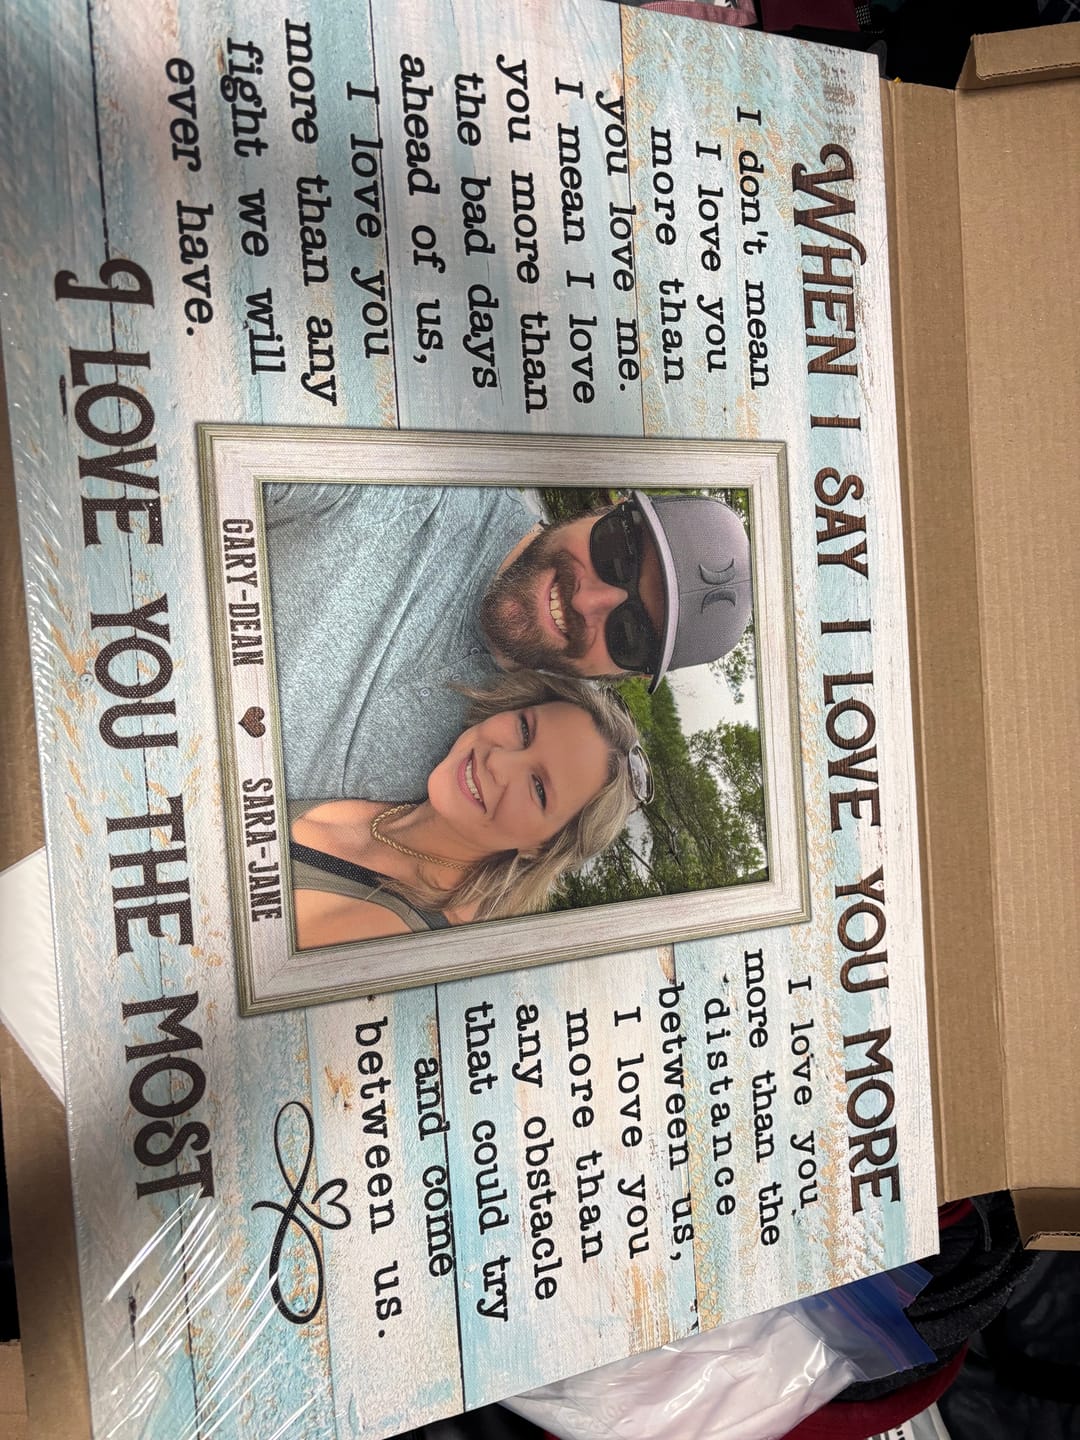 WHEN I SAY I LOVE YOU MORE
I don't mean
I love you
more than
you love me.
I mean I love
you more than
the bad days
ahead of us,
I love you
more than any
fight we will
ever have.
I love you
more than the
distance
between us,
I love you
more than
any obstacle
that could try
and come
between us.
GARY-DEAN ♥ SARA-JANE
I LOVE YOU THE MOST